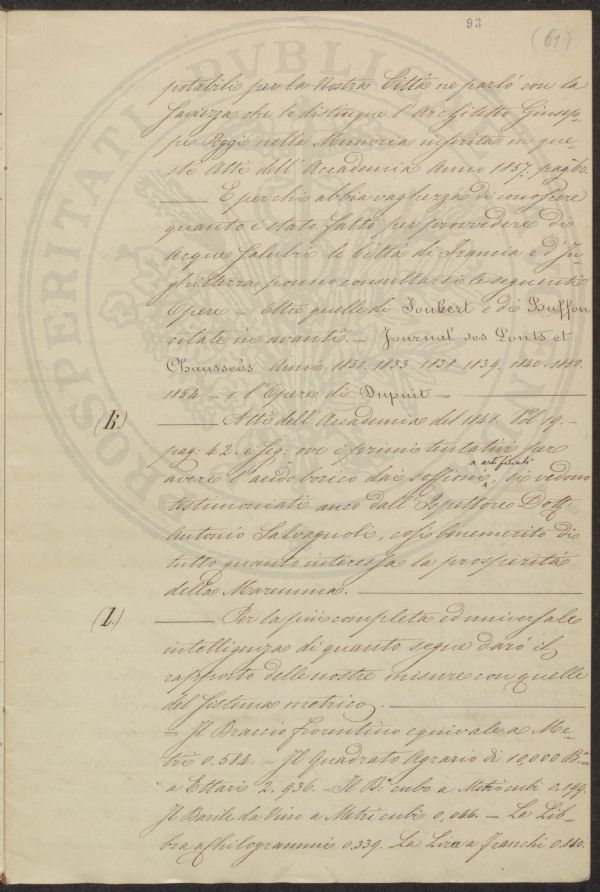 93
(61)
potabili per la Nostra Città ne parlò con la
saviezza che lo distingue l'Architetto Giusep-
pe Poggi nella Memoria inserita in que-
sto Atti dell'Accademia Anno 1857. pag. 60.
—— E per chi abbia vaghezza di conoscere
quanto è stato fatto per provvedere di
Acque salubri le Città di Francia e d'In-
ghilterra ponno consultarsi le seguenti
Opere – Oltre quelle di Joubert e di Buffon
citate in avanti. – Journal des Ponts et
Chausseés Anni 1831. 1833. 1838. 1839. 1840. 1850.
1854 – e l'Opera di Dupuit –
(k.) —— Atti dell'Accademia del 1841. Vol 19. –
pag: 42. e seg. ove i primi tentativi per
avere l'acido borico dai soffioni artificiali, si vedono
testimoniati anco dall'Ispettore Dott.
Antonio Salvagnoli, così benemerito di
tutto quanto interessa la prosperità
della Maremma.
(l.) —— Per la più completa ed universale
intelligenza di quanto segue darò il
rapporto delle nostre misure con quelle
del sistema metrico.
– Il Braccio fiorentino equivale a Me-
tri 0.584. – Il Quadrato Agrario di 10,000 B.a
a Ettari 2.936. – Il B.o cubo a Metri cubi 0.199.
Il Barile da Vino a Metri cubi 0,046. – La Lib-
bra a Chilogrammi 0.339. La Lira a Franchi 0.840.
PROSPERITATI PVBLI